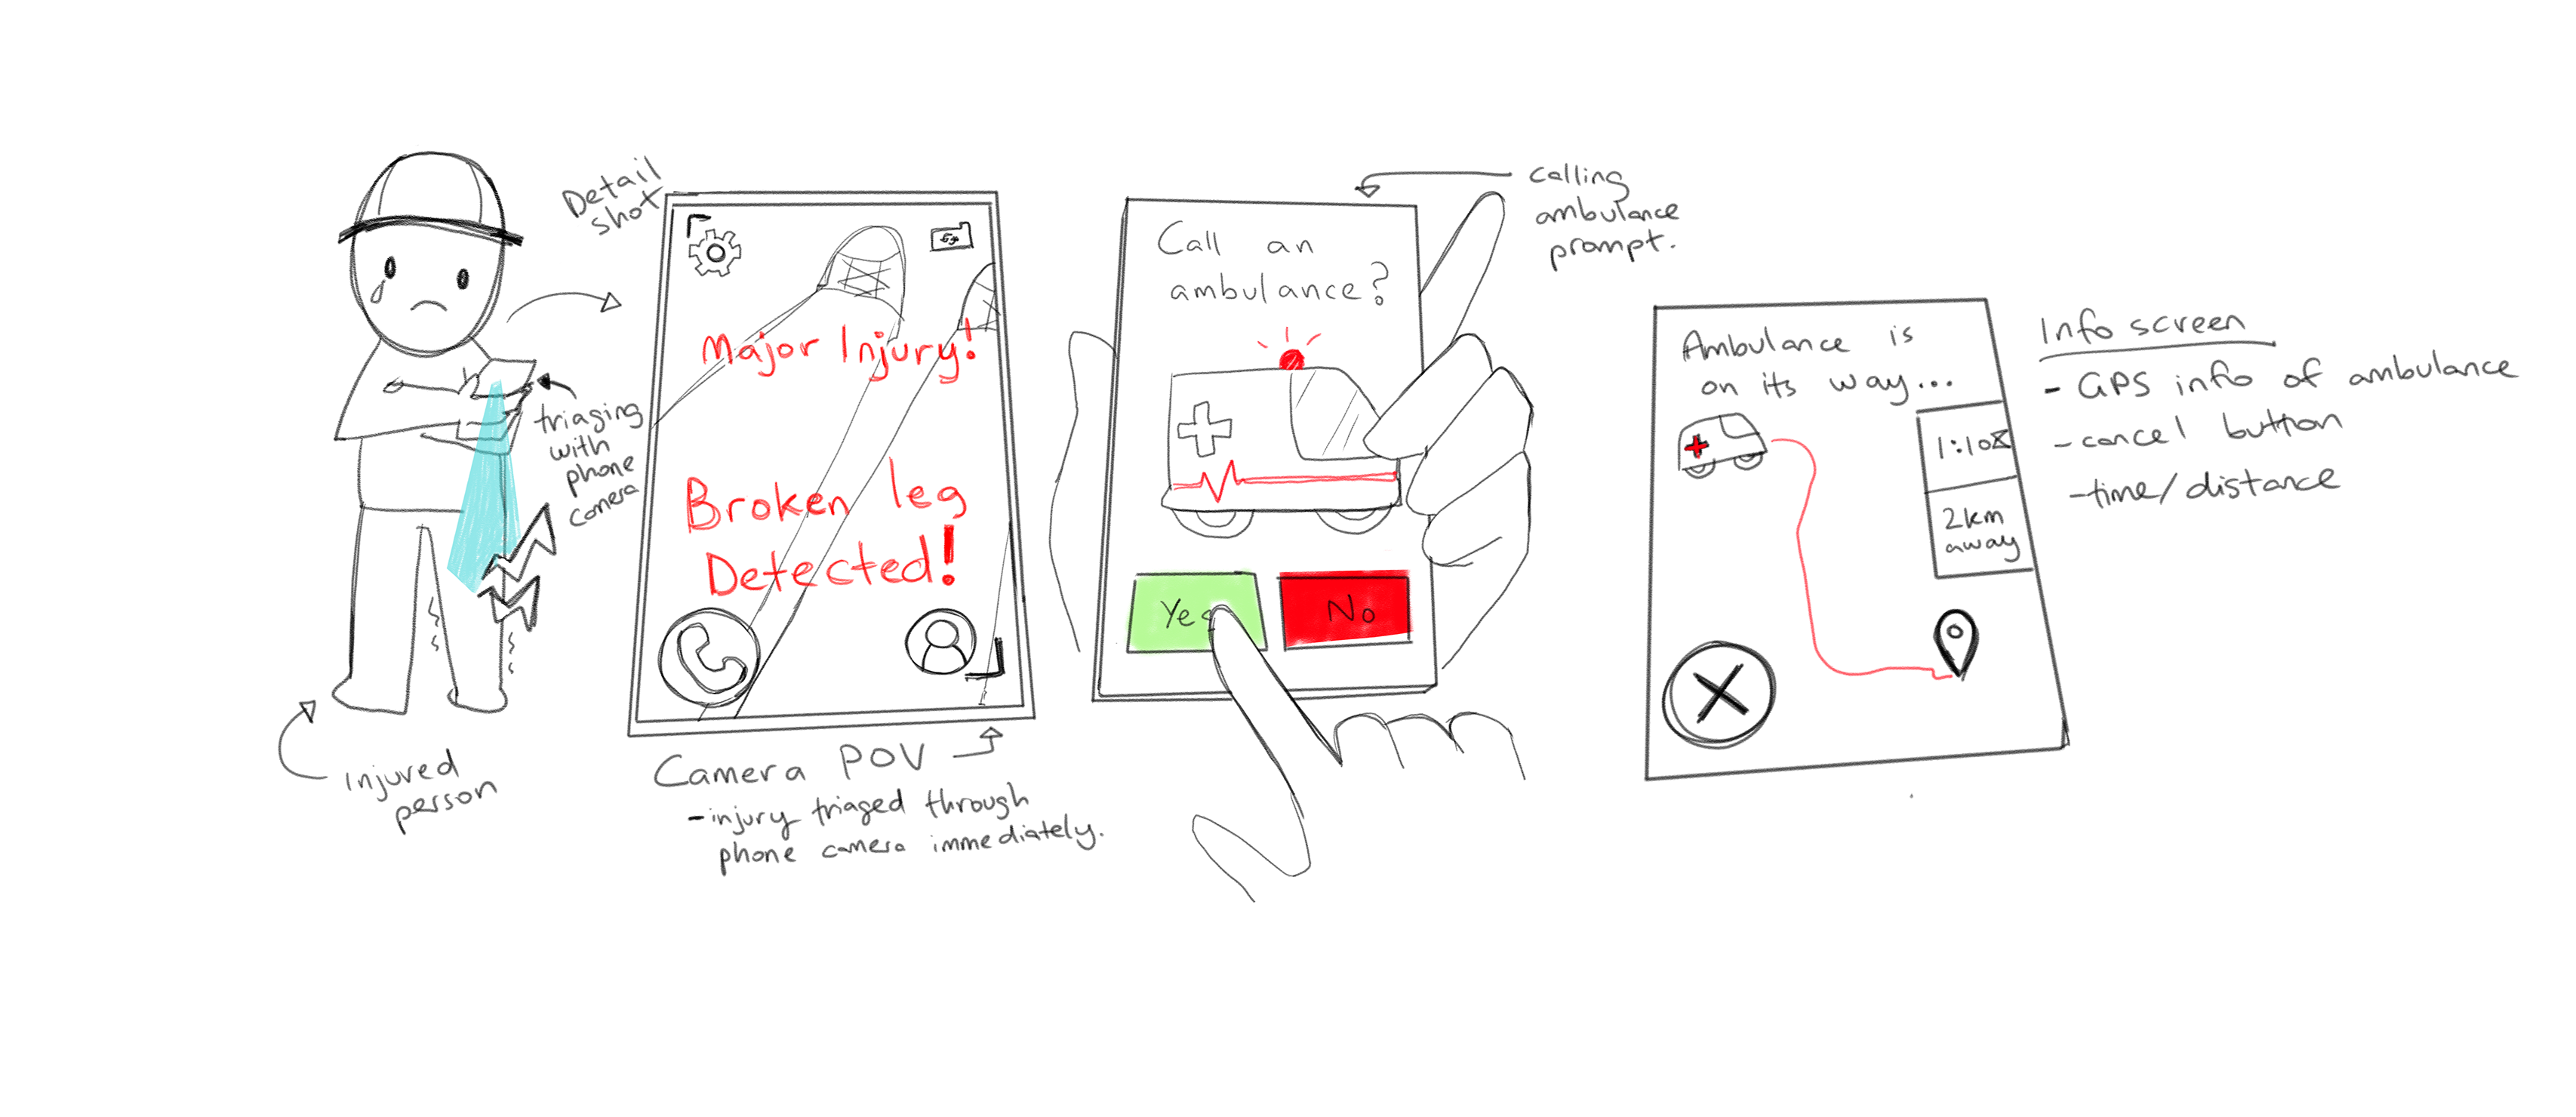 Detail
shot
triaging
with
phone
camera
Injured
person
Major Injury!
Broken leg
Detected!
Camera POV
-injury triaged through
phone camera immediately.
Call an
ambulance?
Yes
No
Calling
ambulance
prompt.
Ambulance is
on its way...
1:10
2km
away
Info screen
- GPS info of ambulance
- cancel button
-time/distance